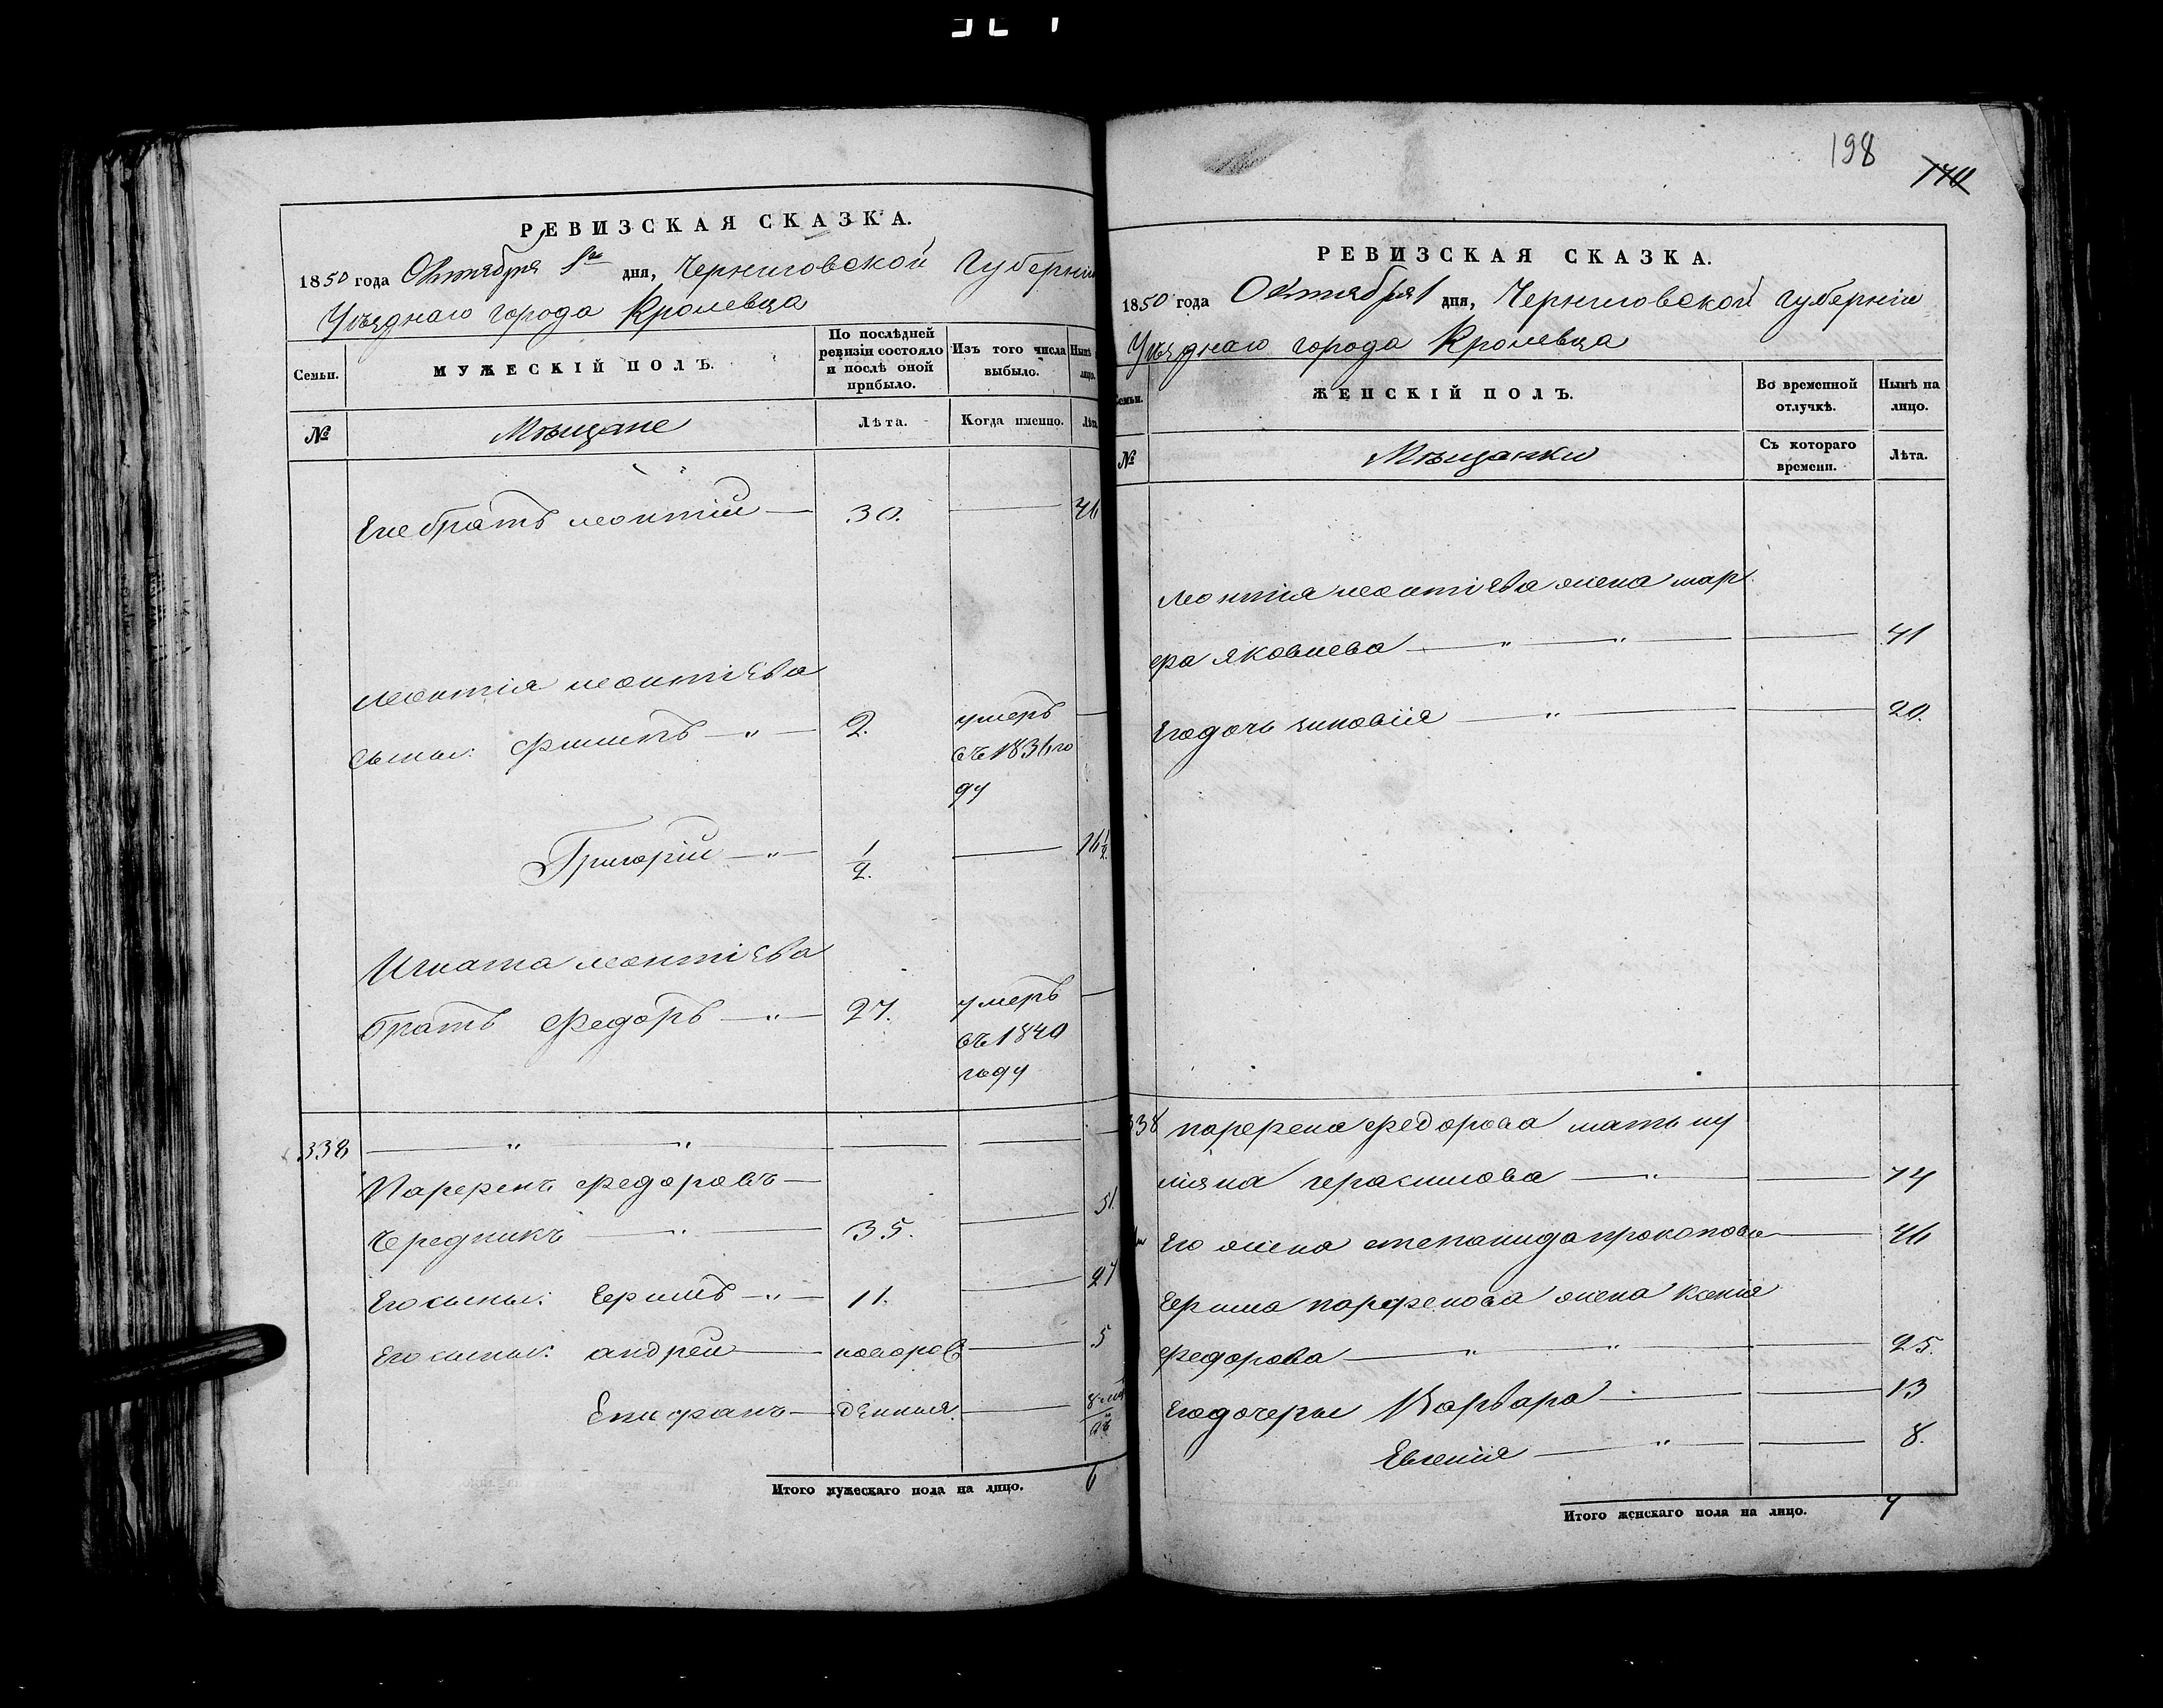 198
140
РЕВИЗСКАЯ СКАЗКА.
1850 года Октября 1го дня, Черниговской Губерніи
Уѣзднаго города Кролевца
Семьи.
МУЖЕСКІЙ ПОЛЪ.
По послѣдней ревизіи состояло и послѣ оной прибыло.
Изъ того числа выбыло.
Нынѣ лицо.
№
Мѣщане
Лѣта.
Когда именно.
Лѣта
Его братъ леонтій — 30. — 46
Леонтія леонтіева
сыны: Филипъ — " — 2. умеръ
въ 1836 го
ду
Григорій — " — 1/2. — 16 1/2.
Игната леонтіева
братъ Федоръ — " — 27. умеръ
въ 1840
году
338 — " — " —
Парфенъ федоровъ —
Чередникъ — " — 35. — 51.
Его сыны: Ефимъ — " — 11. — 27
Его сыны: андрей — новорож — 5
Епифанъ — денныя —
Итого мужескаго пола на лицо. 6
РЕВИЗСКАЯ СКАЗКА.
1850 года Октября 1 дня, Черниговской губерніи
Уѣзднаго города Кролевца
Семьи.
ЖЕНСКІЙ ПОЛЪ.
Во временной отлучкѣ.
Нынѣ на лицо.
№
Мѣщанки
Съ котораго времени.
Лѣта.
Леонтія леонтіева жена мар
фа яковлева — " — " — 41
Его дочь зиновія — " — 20.
338 парфена федорова мать ну
лияна герасимова — " — 74
Его жена степанида прокопова — 46
Ефима парфенова жена Ксенія
федорова — " — " — 25.
Его дочеры Варвара — 13
Евгенія — " — 8.
Итого женскаго пола на лицо. 7